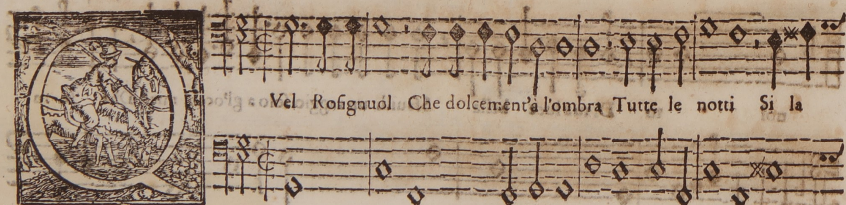 QVel Rosignuol Che dolcement'à l'ombra Tutte le notti Si la